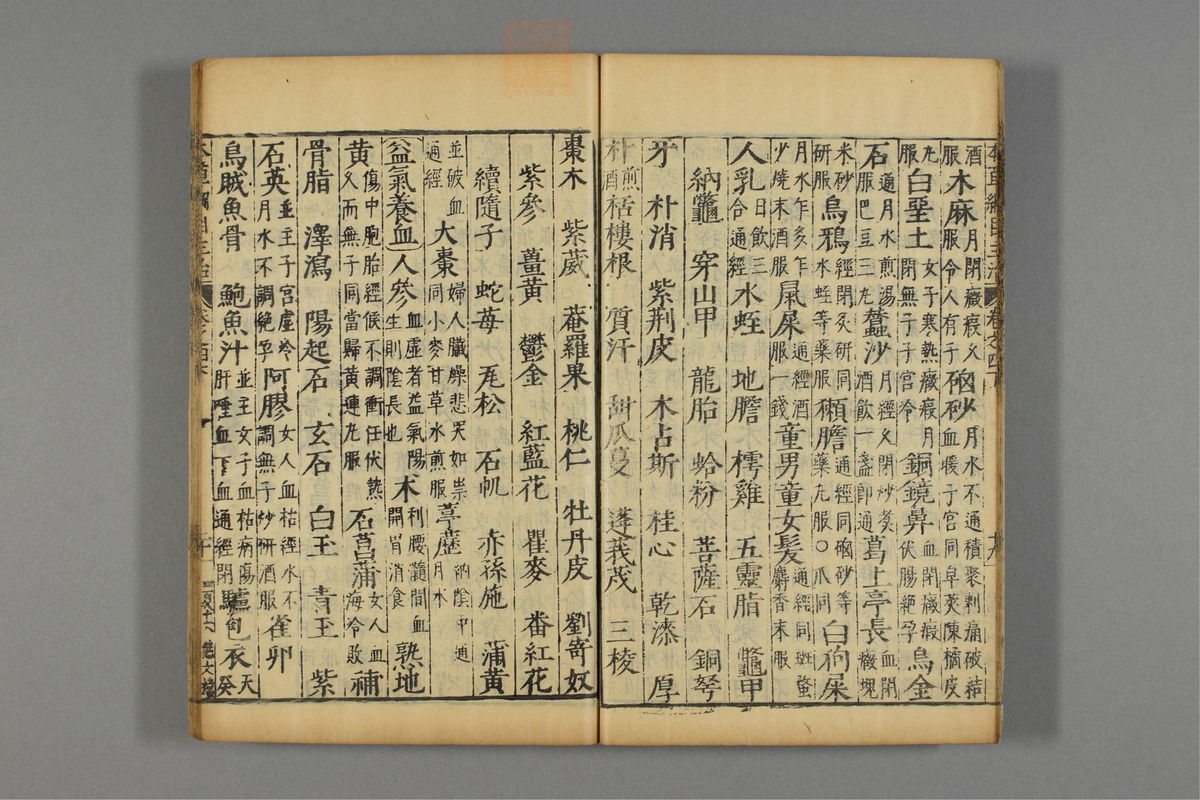 酒服木麻月閉癥瘕久服令人有子硇砂月水不通積聚刺痛破結血暖子宮同皂莢陳橘皮
丸服白堊土女子寒熱癥瘕月閉無子子宮冷銅鏡鼻血閉癥瘕伏腸絕孕烏金
石通月水煎湯服巴豆三丸蠶沙月經久閉炒煮酒飲一盞即通葛上亭長血閉癥塊
米砂研服烏鴉經閉炙研同水蛭等藥服獺膽通經同硇砂等藥丸服○爪同白狗屎
月水乍多乍少燒末酒服鼠屎通經酒服一錢童男童女髮通經同斑蝥麝香末服
人乳日飲三合通經水蛭 地膽 樗雞 五靈脂 鼈甲
納鼈 穿山甲 龍胎 蛤粉 菩薩石 銅弩
牙 朴消 紫荊皮 木占斯 桂心 乾漆 厚
朴煎酒栝樓根 質汗 甜瓜蔓 蓬莪茂 三棱
棗木 紫葳 菴羅果 桃仁 牡丹皮 劉寄奴
紫參 薑黃 鬱金 紅藍花 瞿麥 番紅花
續隨子 蛇莓 瓦松 石帆 赤孫施 蒲黃
並破血通經大棗婦人臟燥悲哭如祟同小麥甘草水煎服葶藶納陰中通月水
益氣養血人參血虛者益氣陽生則陰長也朮利腰臍間血開胃消食熟地
黃傷中胞胎經候不調衝任伏熱久而無子同當歸黃連丸服石菖蒲女人血海冷敗補
骨脂 澤瀉 陽起石 玄石 白玉 青玉 紫
石英並主子宮虛冷月水不調絕孕阿膠女人血枯經水不調無子炒研酒服雀卵
烏賊魚骨 鮑魚汁並主女子血枯病傷肝唾血下血通經閉驢包衣天癸